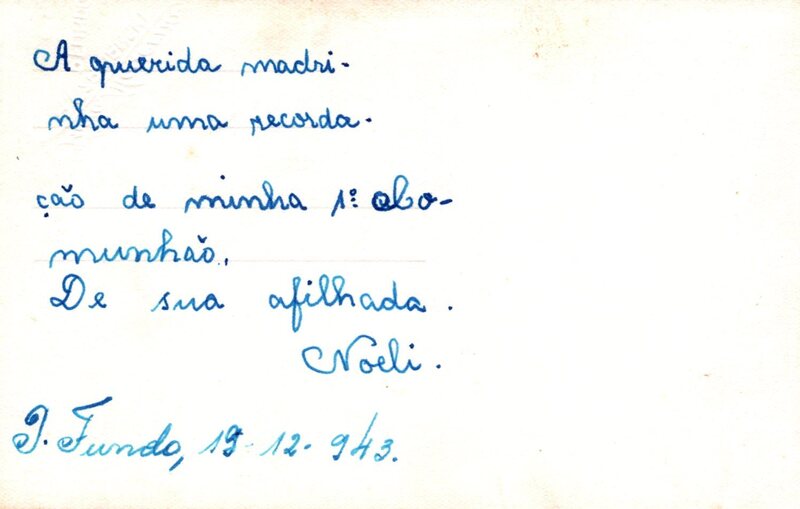 A querida madri-
nha uma recorda-
ção de minha 1º Co-
munhão.
De sua afilhada.
Noeli.
P. Fundo, 19-12-943.